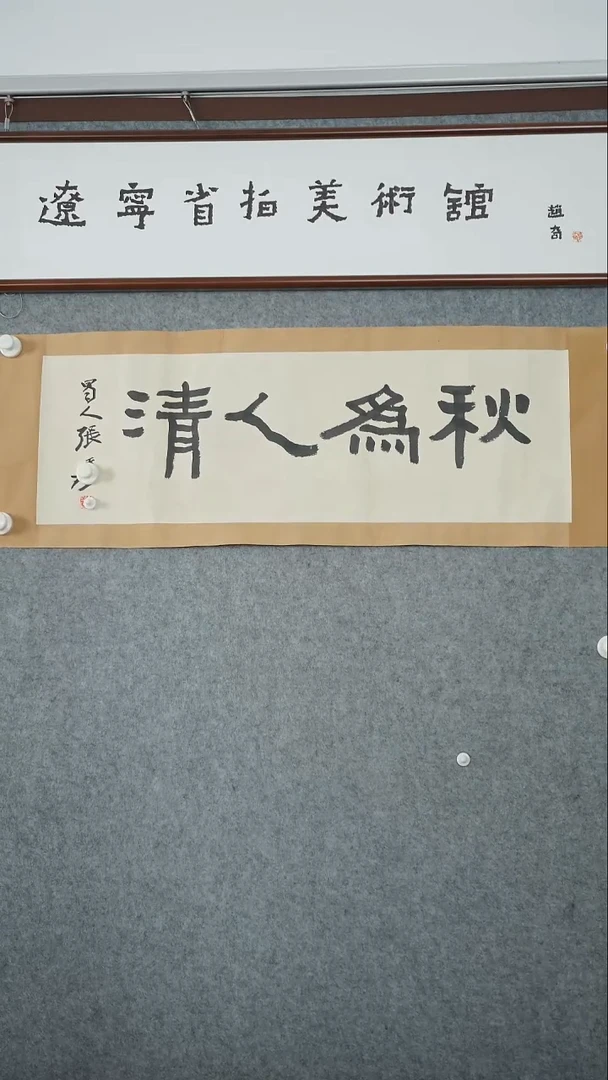 遼寧省拍美術館
趙
秋為人清
蜀人張